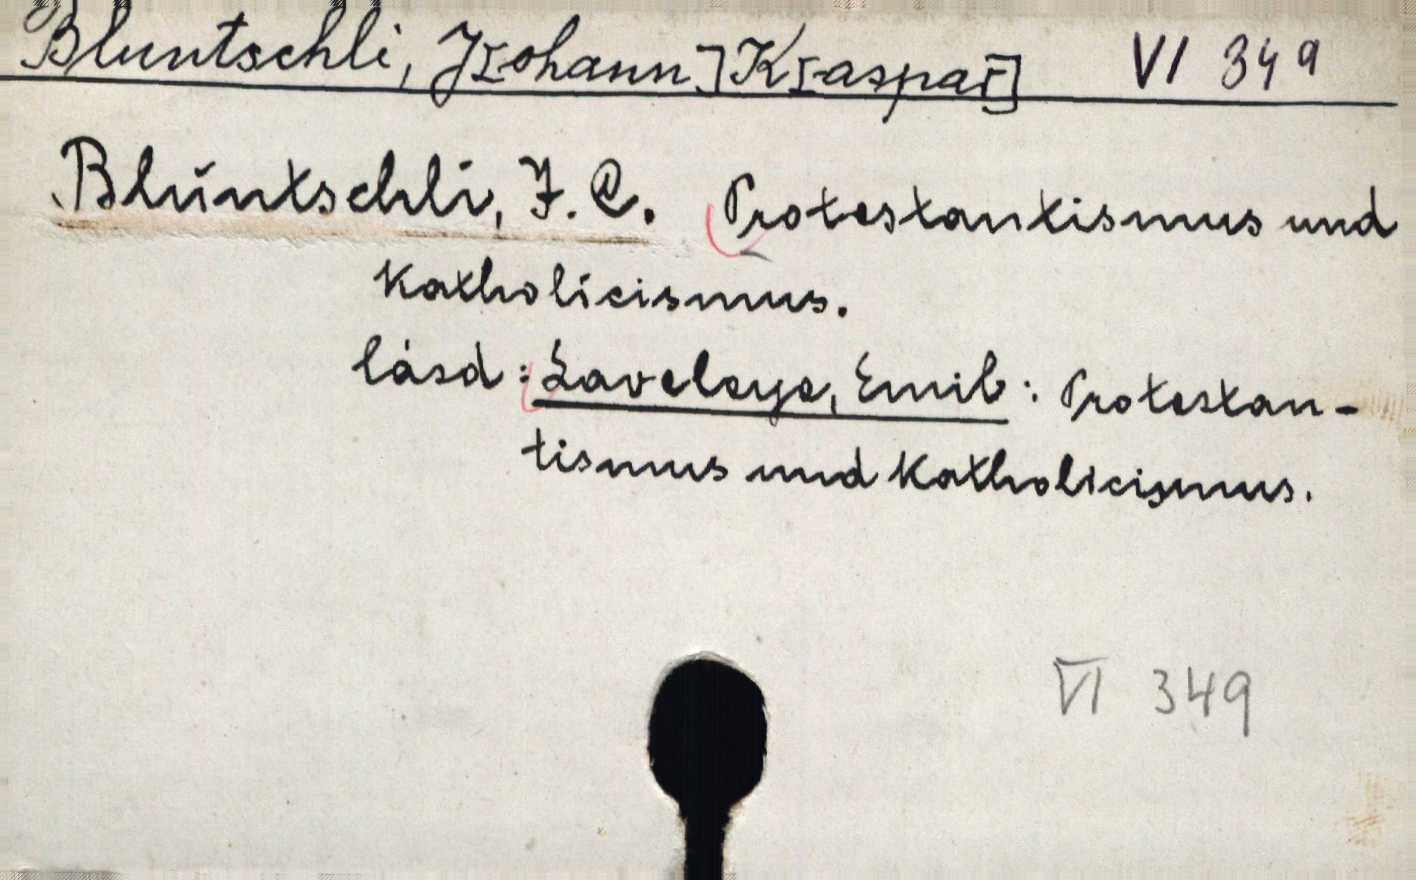 Bluntschli, J[ohann] K[aspar] VI 349
Bluntschli, J. C. Protestantismus und
Katholicismus.
lásd: Laveleye, Emil: Protestan-
tismus und Katholicismus.
VI 349